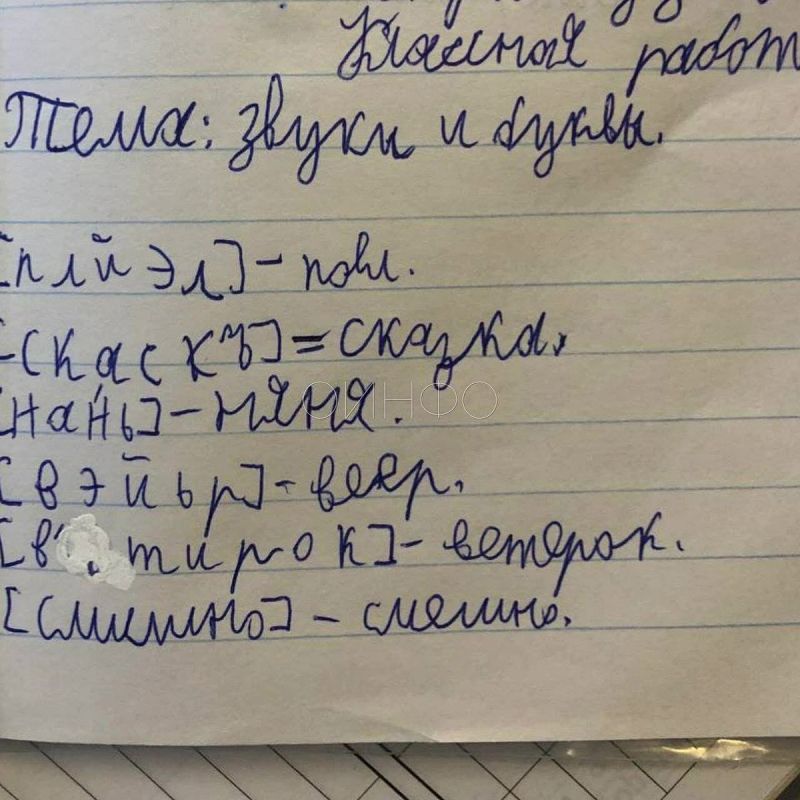 Классная работ
Тема: звуки и буквы.
[п л й э л] - поел.
[с к а с к ъ] = сказка,
[н а н' ь] - няня.
[в э й ь р] - веер.
[в' т и р о к] - ветерок.
[смишно] - смешно.
ОИНФО